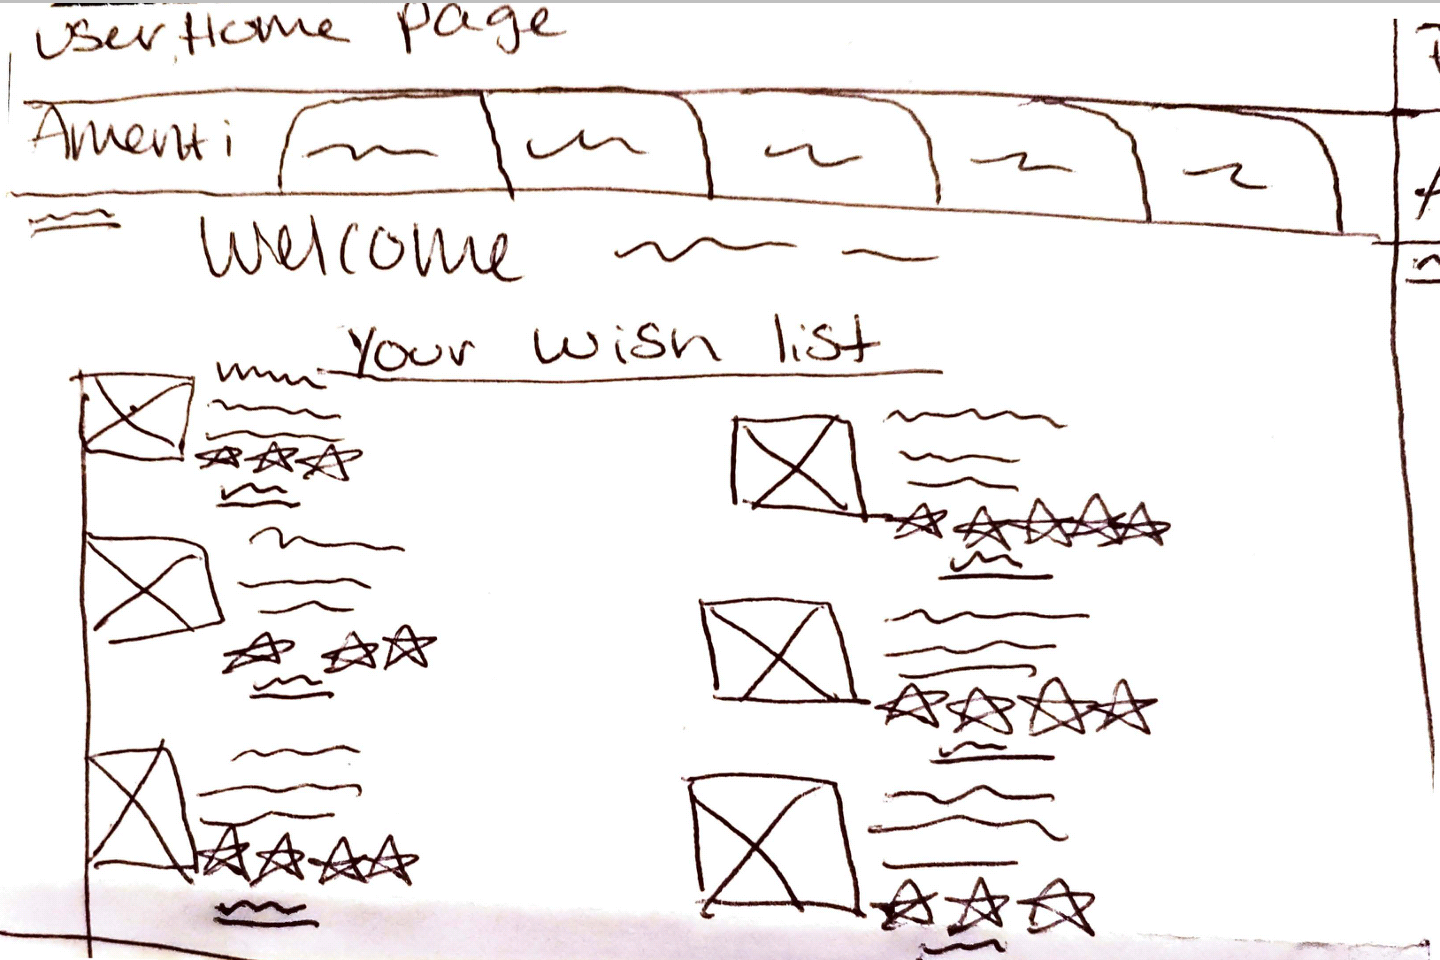 User Home page
Amenti
Welcome
Your wish list